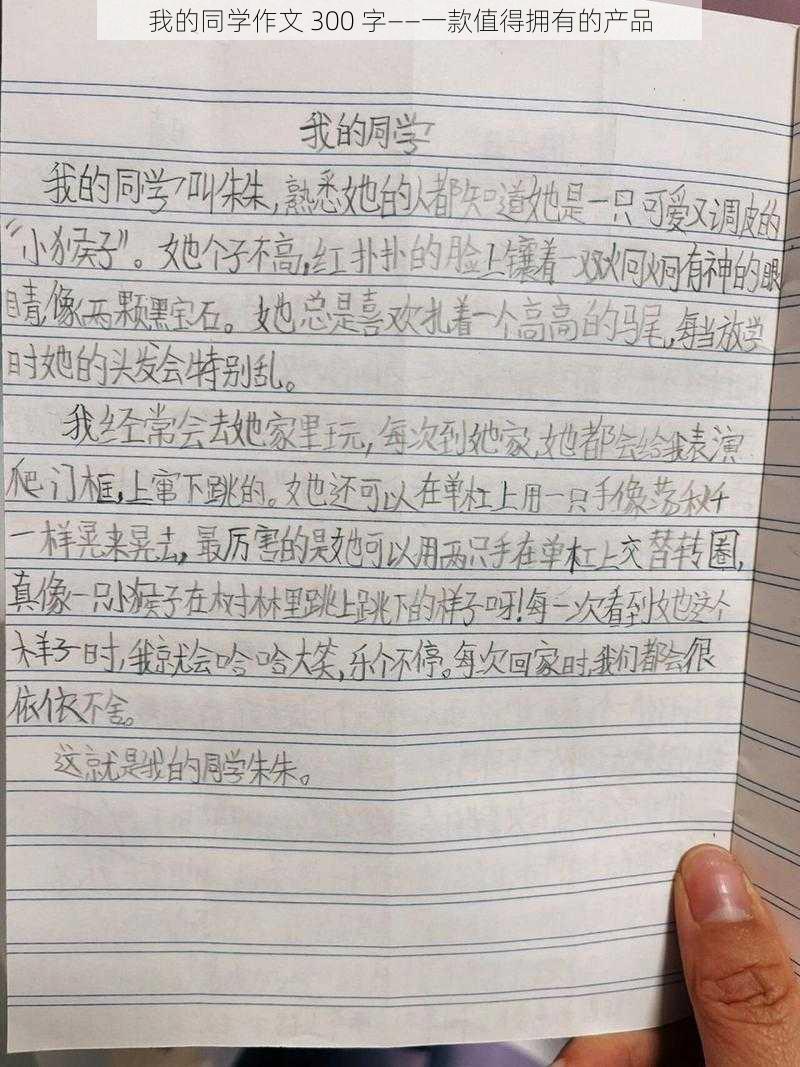 我的同学作文 300 字——一款值得拥有的产品
我的同学
我的同学叫朱朱,熟悉她的人都知道她是一只可爱又调皮的
“小猴子”。她个子不高,红扑扑的脸上镶着一双炯炯有神的眼
睛像两颗黑宝石。她总是喜欢扎着一个高高的马尾,每当放学
时她的头发会特别乱。
我经常会去她家里玩,每次到她家,她都会给我表演
爬门框,上窜下跳的。她还可以在单杠上用一只手像荡秋千
一样晃来晃去,最厉害的是她可以用两只手在单杠上交替转圈,
真像一只小猴子在树林里跳上跳下的样子呀!每一次看到她这个
样子时,我就会哈哈大笑,乐个不停。每次回家时,我们都会很
依依不舍。
这就是我的同学朱朱。